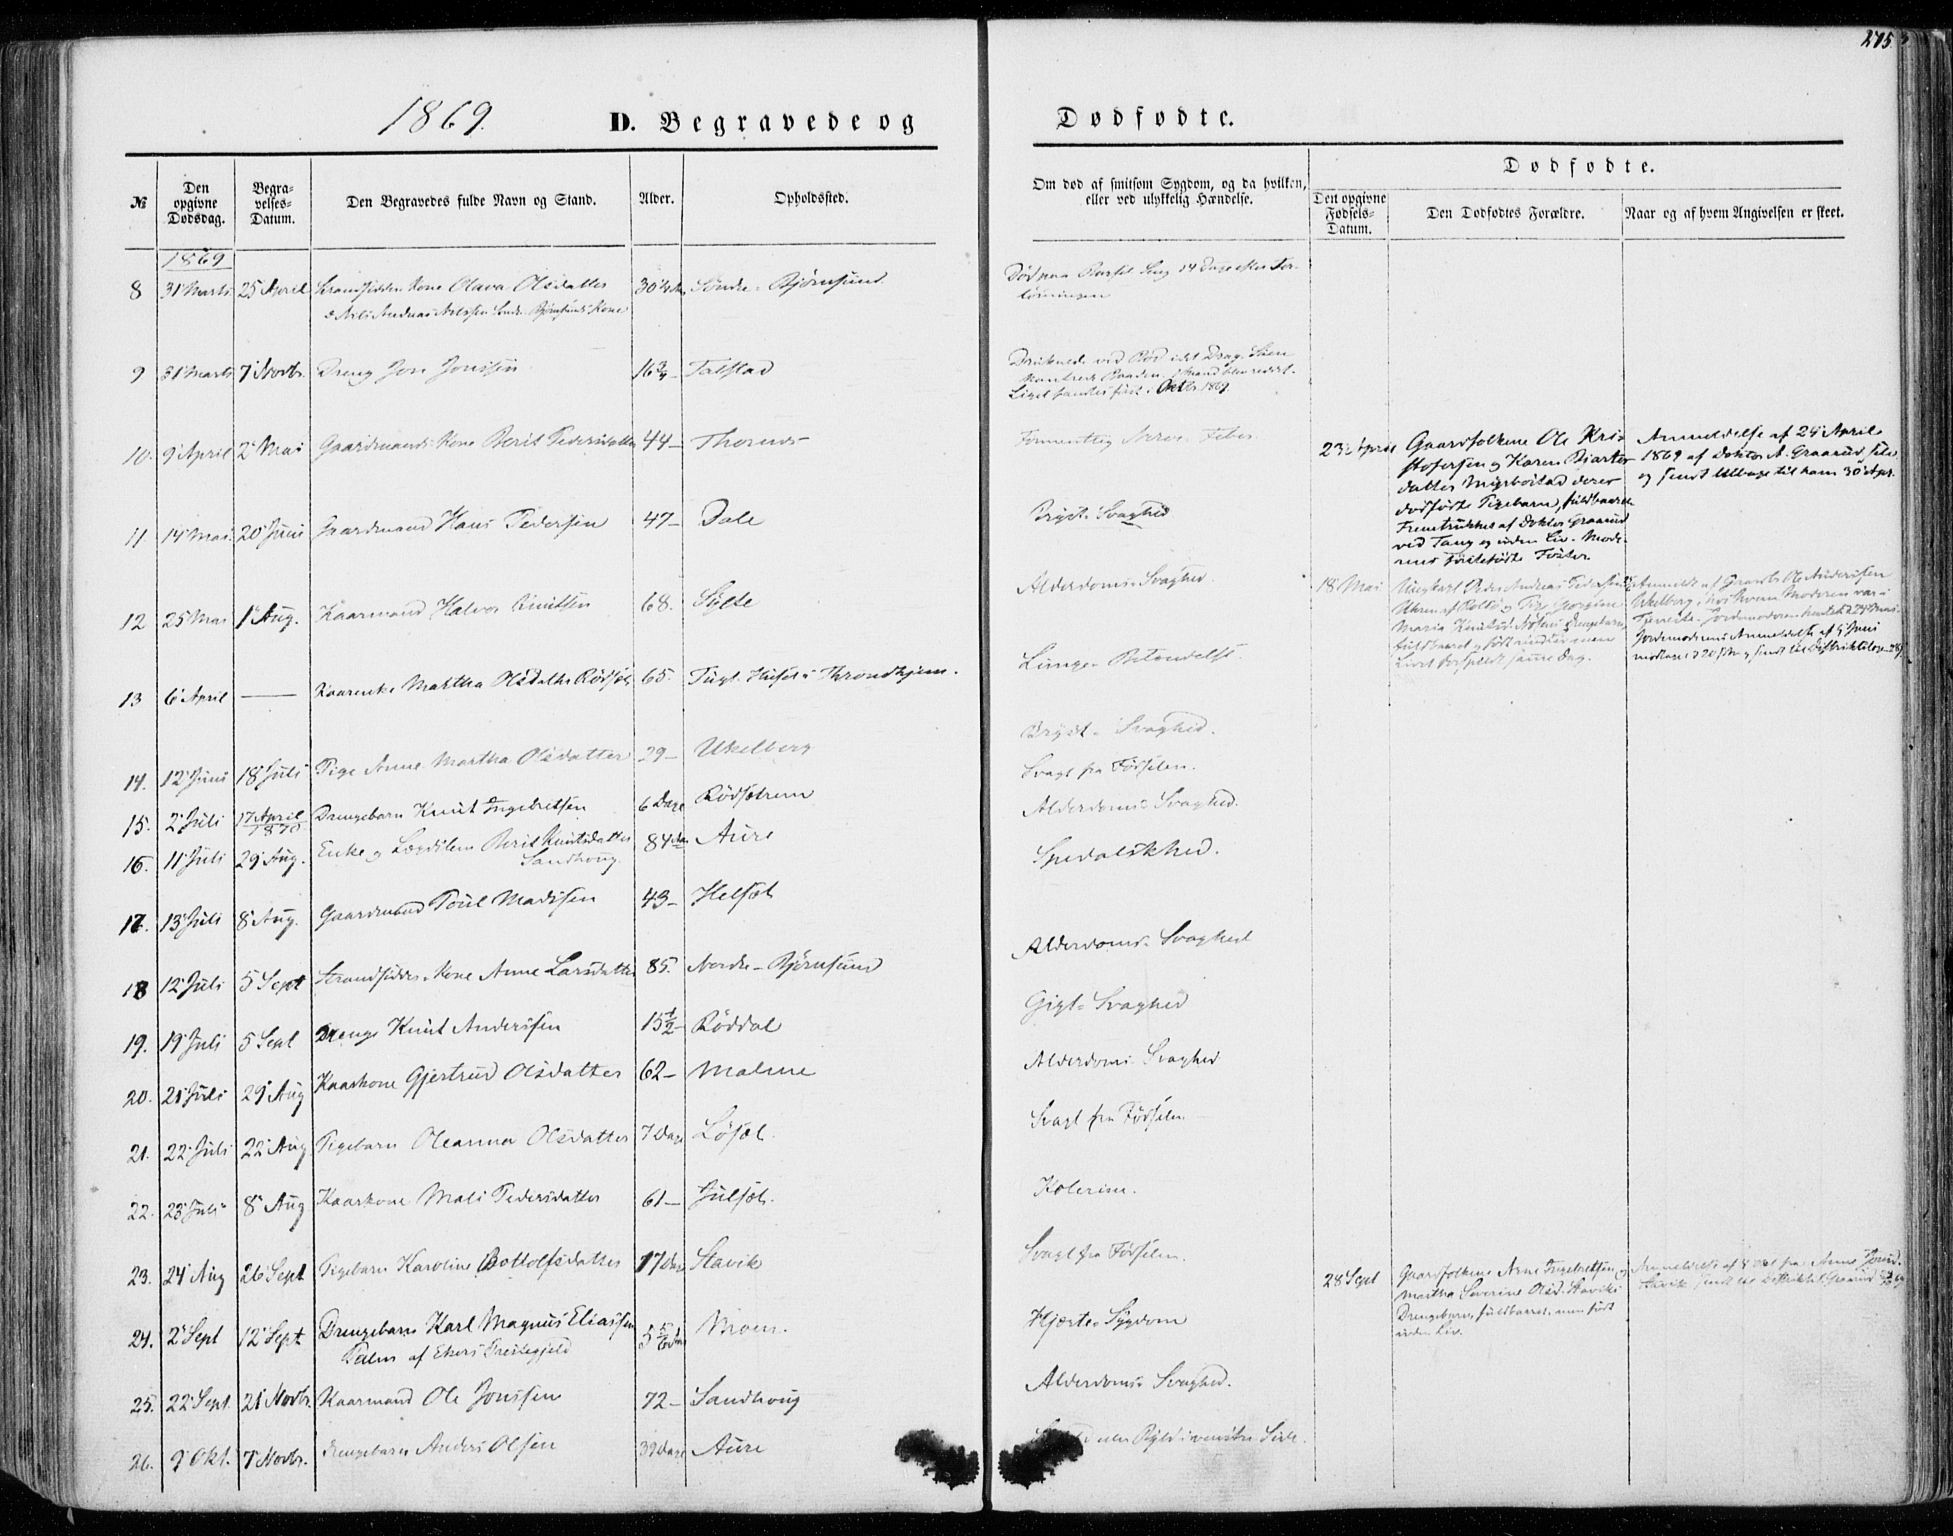 275
1869.
D. Begravede og
Dødfødte.
№
Den opgivne Dødsdag.
Begravelses-Datum.
Den Begravedes fulde Navn og Stand.
Alder.
Opholdssted.
Om død af smitsom Sygdom, og da hvilken, eller ved ulykkelig Hændelse.
Dødfødte.
Den opgivne Fødsels-Datum.
Den Dødfødtes Forældre.
Naar og af hvem Angivelsen er skeet.
1869
8 31 Marts 25 April Kone Olava Olsdatter Søndre-Bjørnsund
Død paa Barsel Seng 14 Dage efter
9 31 Marts 7 Novbr. Dreng Jon Jonsen 16 3/4 Talstad
Liget fandtes først i Oktbr. 1869.
10. 9 April 2 Mai Gaardmands Kone Berit Pedersdatter 44 Thornes
Formentlig Nerve-Feber.
23 April Gaardfolkene Ole Kri-
stofersen og Karen Bjartes-
datter deres
dødfødte Pigebarn, fuldbaaret
Fremtrukket af Doktor Graarud
ved Tang og uden Liv. Mode-
rens førstefødte Foster.
Anmeldelse af 24 April
1869 af Doktor A. Graarud
og sendt tilbage til ham 30 Apr.
11 14 Mai 20 Juni Gaardmand Hans Pedersen 47 Dale
Bryst-Svaghed
12 25 Mai 1 Aug. Kaarmand Halvor Knutsen 68. Sylte
Alderdoms-Svaghed.
18 Mai Ungkarl Peder Andreas Pedersen
Maria
fuldbaaret og født
samme Dag.
Anmeldt af Ole Anderssen
Ukelberg, hos hvem Moderen var i
Tjeneste.
Jordemoderens Anmeldelse af 5 Juni
13 6 April — Kaarenke Martha Olsdatter Rødsæt 65. Tugt-Huset i Throndhjem.
Lunge-Betændelse.
14. 12 Juni 18 Juli Pige Anne Martha Olsdatter 29 Ukelberg
Bryst-Svaghed.
15. 2 Juli 17 April 1870 Drengebarn Knut Ingebretsen 6 Dage Rødsætrem
Svagt fra Fødselen.
16. 11 Juli 29 Aug. Enke og Lægdslem Berit Knutsdatter
Sandhoug. 84 Aar Aure
Alderdoms-Svaghed.
17. 13 Juli 8 Aug. Gaardmand Poul Madssen 43 Helsæt
Spedalskhed.
18 12 Juli 5 Sept Strandsidder-Kone Anne Larsdatter 85. Nordre-Bjørnsund
Alderdoms-Svaghed
19. 19 Juli 5 Sept Dreng Knut Anderssen 15 1/2 Røddal
Gigt-Svaghed
20. 21 Juli 29 Aug Kaarkone Gjertrud Olsdatter 62 Malme
Alderdoms-Svaghed
21. 22 Juli 22 Aug Pigebarn Oleanna Olsdatter 7 Dage Løsæt.
Svagt fra Fødselen
22. 23 Juli 8 Aug Kaarkone Mali Pedersdatter 61 Julsæt.
Kolerine.
23. 24 Aug 26 Sept Pigebarn Karoline Bottolfsdatter 17 Dage Stavik
Svagt fra Fødselen.
28 Sept Gaardfolkene Arne Ingebretsen og
Martha Severine Olsd. Staviks
Drengebarn, fuldbaaret, men født
uden Liv.
Anmeldelse af 8 Okt fra
24. 2 Sept 12 Sept Drengebarn Karl Magnus Eliassen
Palm af Ekers Præstegjeld 5 5/6 Moen.
Hjerte-Sygdom
25. 22 Sept. 21 Novbr. Kaarmand Ole Jonssen 72 Sandhoug
Alderdoms-Svaghed.
26. 9 Okt. 7 Novbr. Drengebarn Anders Olsen 39 Dage Aure
eller Byld i venstre Side.